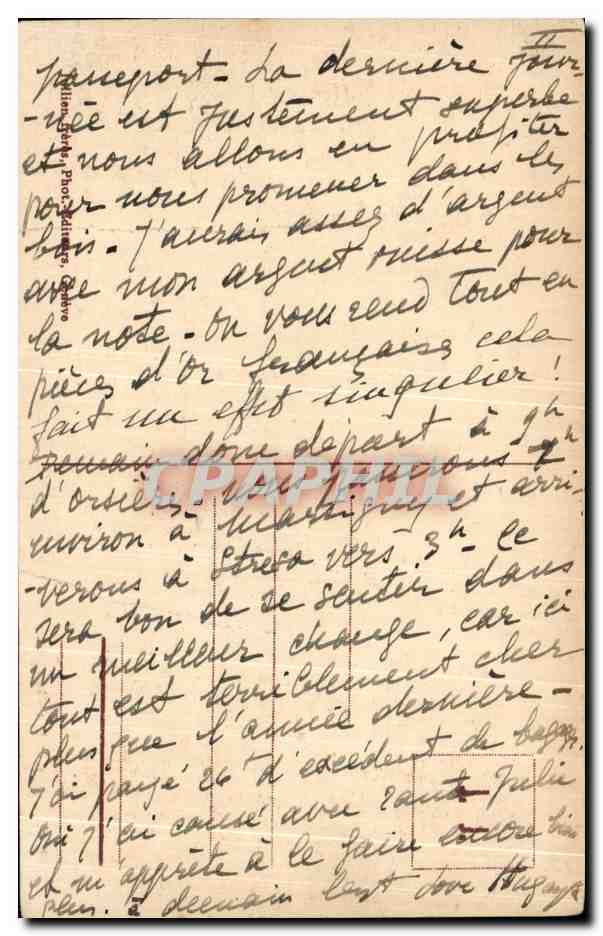 II
passeport - La dernière jour-
-née est justement superbe
et nous allons en profiter
pour nous promener dans les
bois - J'aurais assez d'argent
avec mon argent suisse pour
la note - On vous rend tout en
pièces d'or françaises cela
fait un effet singulier !
Demain donc départ à 9h
d'Orsières - nous passerons 1h
environ à Martigny et arri-
-verons à Stresa vers 3h - Ce
sera bon de se sentir dans
un meilleur change, car ici
tout est terriblement cher
plus que l'année dernière -
J'ai payé 26f d'excédent de bagages
J'ai causé avec Tante Julie
et m'apprête à le faire encore bien
plus. à demain best love
Jullien frères, Phot.-Éditeurs, Genève
CPAPHIL